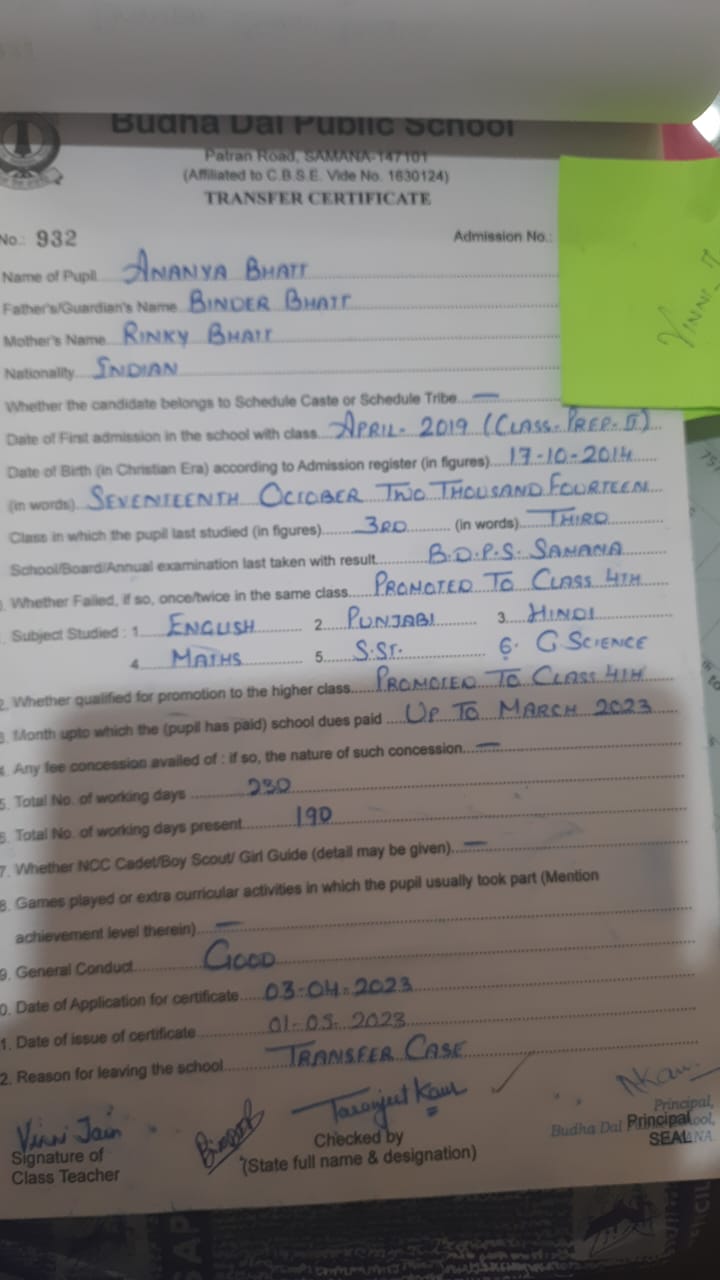 Budha Dal Public School
Patran Road, SAMANA-147101
(Affiliated to C.B.S.E. Vide No. 1630124)
TRANSFER CERTIFICATE
No.: 932 Admission No.:
Name of Pupil ANANYA BHATT
Father's/Guardian's Name BINDER BHATT
Mother's Name RINKY BHATT
Nationality INDIAN
Whether the candidate belongs to Schedule Caste or Schedule Tribe —
Date of First admission in the school with class APRIL- 2019 (CLASS- PREP-II)
Date of Birth (in Christian Era) according to Admission register (in figures) 17-10-2014
(in words) SEVENTEENTH OCTOBER TWO THOUSAND FOURTEEN
Class in which the pupil last studied (in figures) 3RD (in words) THIRD
School/Board/Annual examination last taken with result B.D.P.S. SAMANA
Whether Failed, if so, once/twice in the same class PROMOTED TO CLASS 4TH
Subject Studied : 1 ENGLISH 2 PUNJABI 3. HINDI
4 MATHS 5 S.ST. 6. G SCIENCE
2. Whether qualified for promotion to the higher class PROMOTED TO CLASS 4TH
3. Month upto which the (pupil has paid) school dues paid UP TO MARCH 2023
4. Any fee concession availed of : if so, the nature of such concession —
5. Total No. of working days 230
6. Total No. of working days present 190
7. Whether NCC Cadet/Boy Scout/ Girl Guide (detail may be given) —
8. Games played or extra curricular activities in which the pupil usually took part (Mention
achievement level therein) —
9. General Conduct GOOD
0. Date of Application for certificate 03-04-2023
1. Date of issue of certificate 01-05-2023
2. Reason for leaving the school TRANSFER CASE
Vinni Jain Taranjeet Kaur NKaur
Signature of
Class Teacher
Checked by
(State full name & designation)
Principal,
Budha Dal Principal ool,
SEAL NA